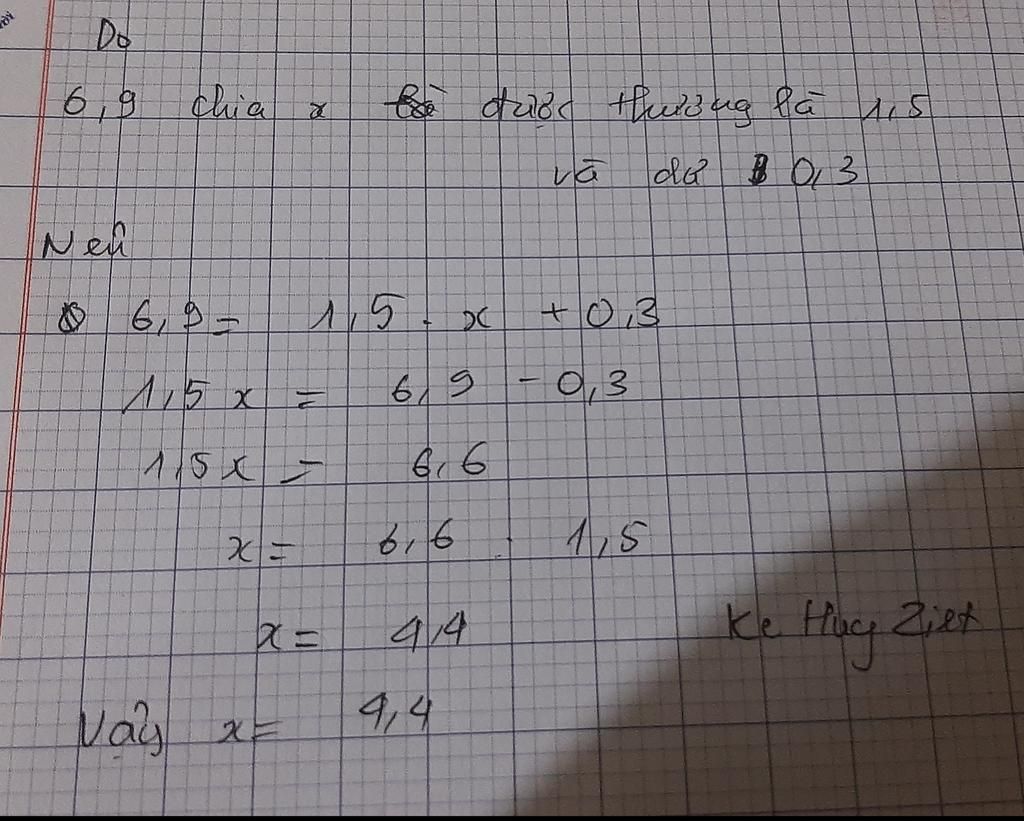 Do
6,9 chia x được thương là 1,5
và dư 0,3
Nên
6,9 = 1,5 . x + 0,3
1,5 x = 6,9 - 0,3
1,5x = 6,6
x = 6,6 : 1,5
x = 4,4
Ke Hug Ziet
Vậy x = 4,4